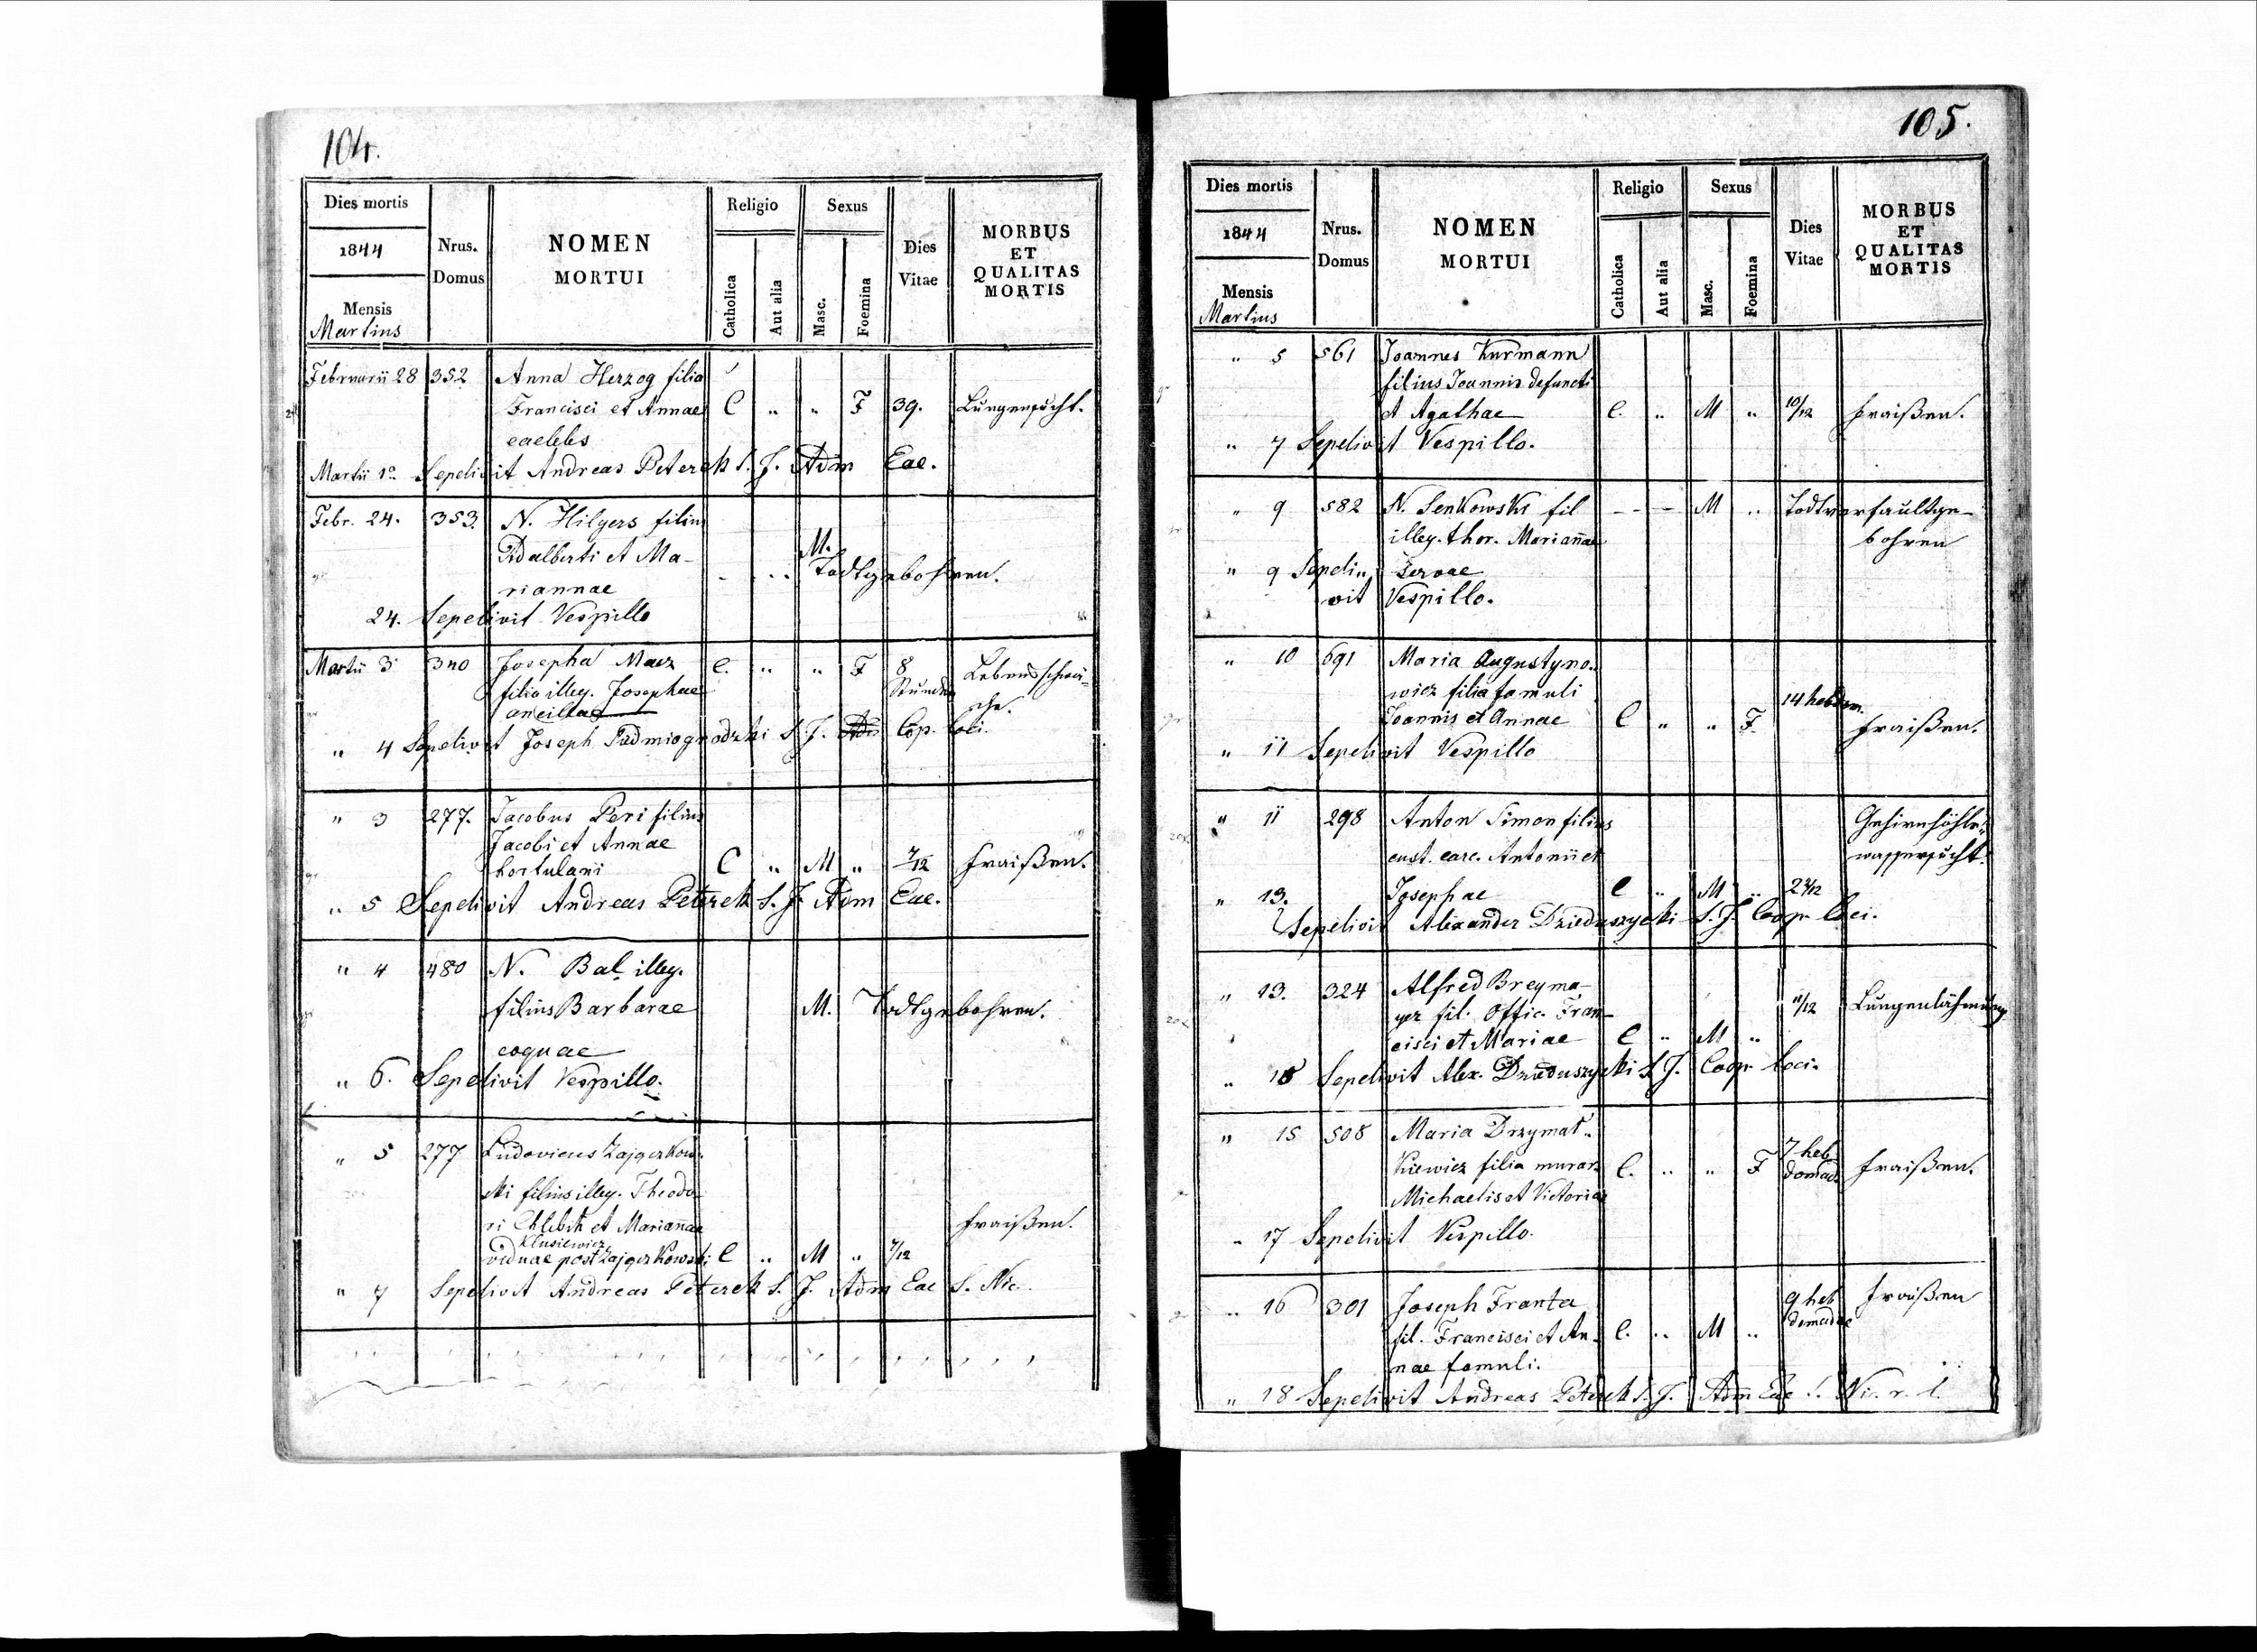 104.
Dies mortis
1844
Mensis
Martius
Nrus. Domus
NOMEN MORTUI
Religio
Catholica
Aut alia
Sexus
Masc.
Foemina
Dies Vitae
MORBUS ET QUALITAS MORTIS
Februarii 28 352 Anna Herzog filia
Francisci et Annae C " " F 39. Lungensucht.
caelebs
Martii 1° Sepelivit Andreas Peterek S. J. Adm Eae.
Febr. 24. 353. N. Hilgers filius
Adalberti et Ma- M.
riannae Todtgebohren.
24. Sepelivit Vespillo
Martii 3 340 Josepha Macz C. " " F 8 Lebensschwä-
filia illeg. Josephae Stunden che.
ancillae
" 4 Sepelivit Joseph S. J. Cop. loci.
" 3 277. Jacobus Peri filius
Jacobi et Annae
hortulani C " M " 7/12 Fraißen.
" 5 Sepelivit Andreas Peterek S. J. Adm Eae.
" 4 480 N. Bal illeg.
filius Barbarae M. Todtgebohren.
coquae
" 6. Sepelivit Vespillo.
" 5 277 Ludovicus Zajączkow-
ski filius illeg. Theodo-
ri Chlebik et Mariannae Fraißen.
Klusiewicz
viduae post Zajączkowski C " M " 7/12
" 7 Sepelivit Andreas Peterek S. J. Adm Eae S. Nic.
105.
Dies mortis
1844
Mensis
Martius
Nrus. Domus
NOMEN MORTUI
Religio
Catholica
Aut alia
Sexus
Masc.
Foemina
Dies Vitae
MORBUS ET QUALITAS MORTIS
" 5 561 Joannes Kurmann
filius Joannis defuncti
et Agathae C. " M " 10/12 Fraißen.
" 7 Sepelivit Vespillo.
" 9 582 N. Senkowski fil - - - M " Todtverfaultge-
illeg. thor. Mariannae bohren
" 9 Sepeli- servae
vit Vespillo.
" 10 691 Maria Augustyno-
wicz filia famuli 14 hebdom.
Joannis et Annae C " " F Fraißen.
" 11 Sepelivit Vespillo
" 11 298 Anton Simon filius Gehirnhöhle-
cust. carc. Antonii et wassersucht.
" 13. Josephae C " M " 2 2/12
Sepelivit Alexander Dzieduszycki S. J. Coop. loci.
" 13. 324 Alfred Breyma-
yer fil. Offic. Fran- 11/12 Lungenlähmung
cisci et Mariae C " M "
" 15 Sepelivit Alex. Dzieduszycki S. J. Coop. loci.
" 15 508 Maria Drzymał-
kiewicz filia murar. C. " " F 7 heb- Fraißen.
Michaelis et Victoriae domad.
" 17 Sepelivit Vespillo.
" 16 301 Joseph Franta 9 heb Fraißen
fil. Francisci et An- C. " M " domadae
nae famuli.
" 18 Sepelivit Andreas Peterek S. J. Adm Eae S. Ni. r. l.